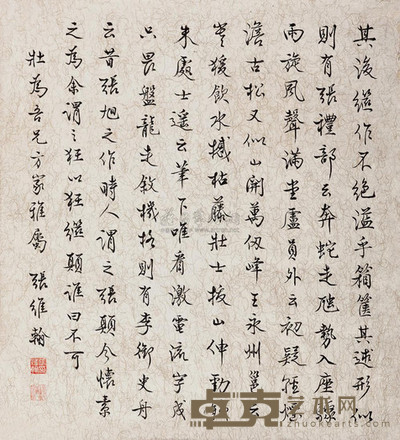 其後繼作不絕溢乎箱篋其述形似
則有張禮部云奔蛇走虺勢入座驟
雨旋風聲滿堂盧員外云初疑輕煙
澹古松又似山開萬仞峰王永州邕云
寒猿飲水撼枯藤壯士拔山伸勁鐵
朱處士遙云筆下唯看激電流字成
只畏盤龍走敘機格則有李御史舟
云昔張旭之作時人謂之張顛今懷素
之為余謂之狂以狂繼顛誰曰不可
壯為吾兄方家雅屬 張維翰
艺术网
www.zhuokearts.com